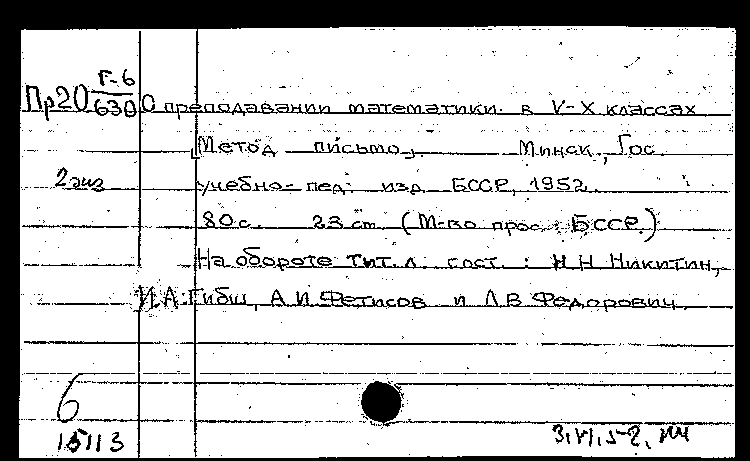 Г-6
Пр20 630 О преподавании математики в V-X классах
[Метод письмо]. Минск, Гос.
2 экз учебно-пед. изд. БССР, 1952.
80 с. 23 см (М-во прос. БССР.)
На обороте тит. л. сост.: Н Н Никитин,
И.А. Гибш, А И Фетисов и Л В Федорович.
6
15113